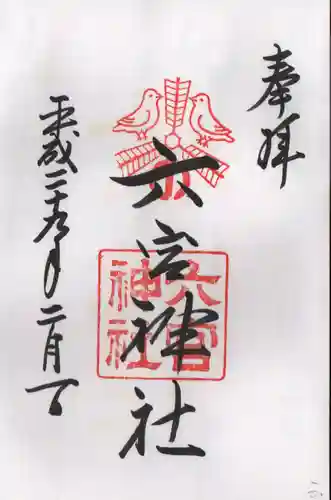 奉拝
六宮神社
六宮
神社
平成二十九年二月一日